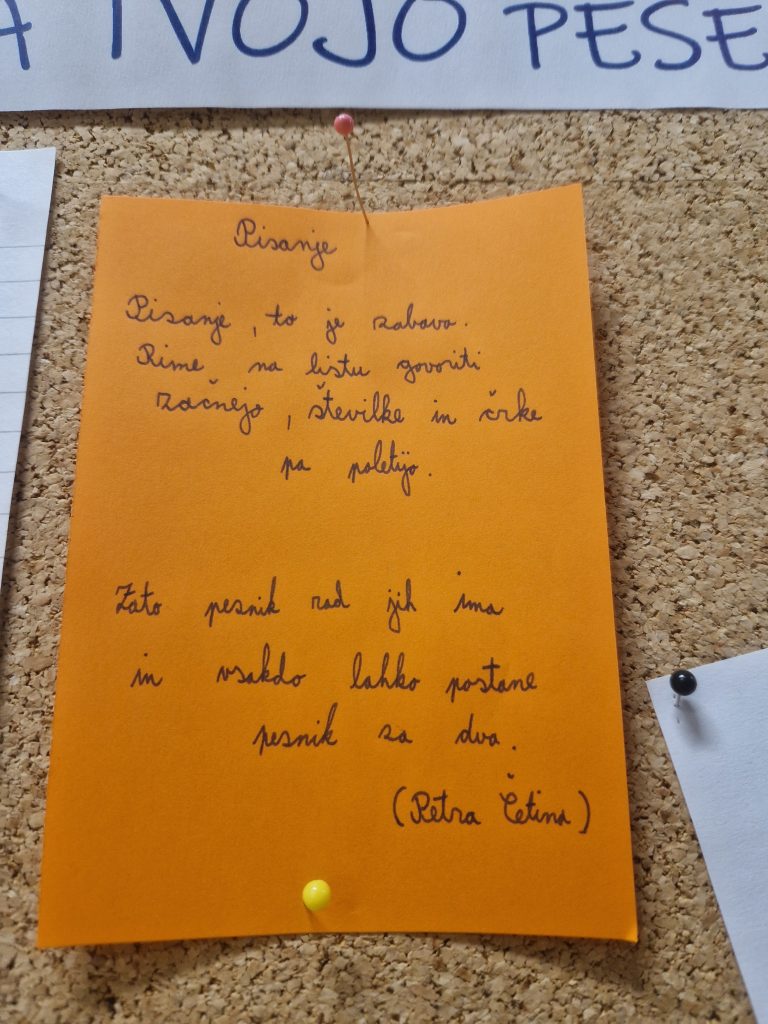 A TVOJO PESE
Pisanje
Pisanje, to je zabava.
Rime na listu govoriti
začnejo, številke in črke
pa poletijo.
Zato pesnik rad jih ima
in vsakdo lahko postane
pesnik za dva.
(Petra Četina)